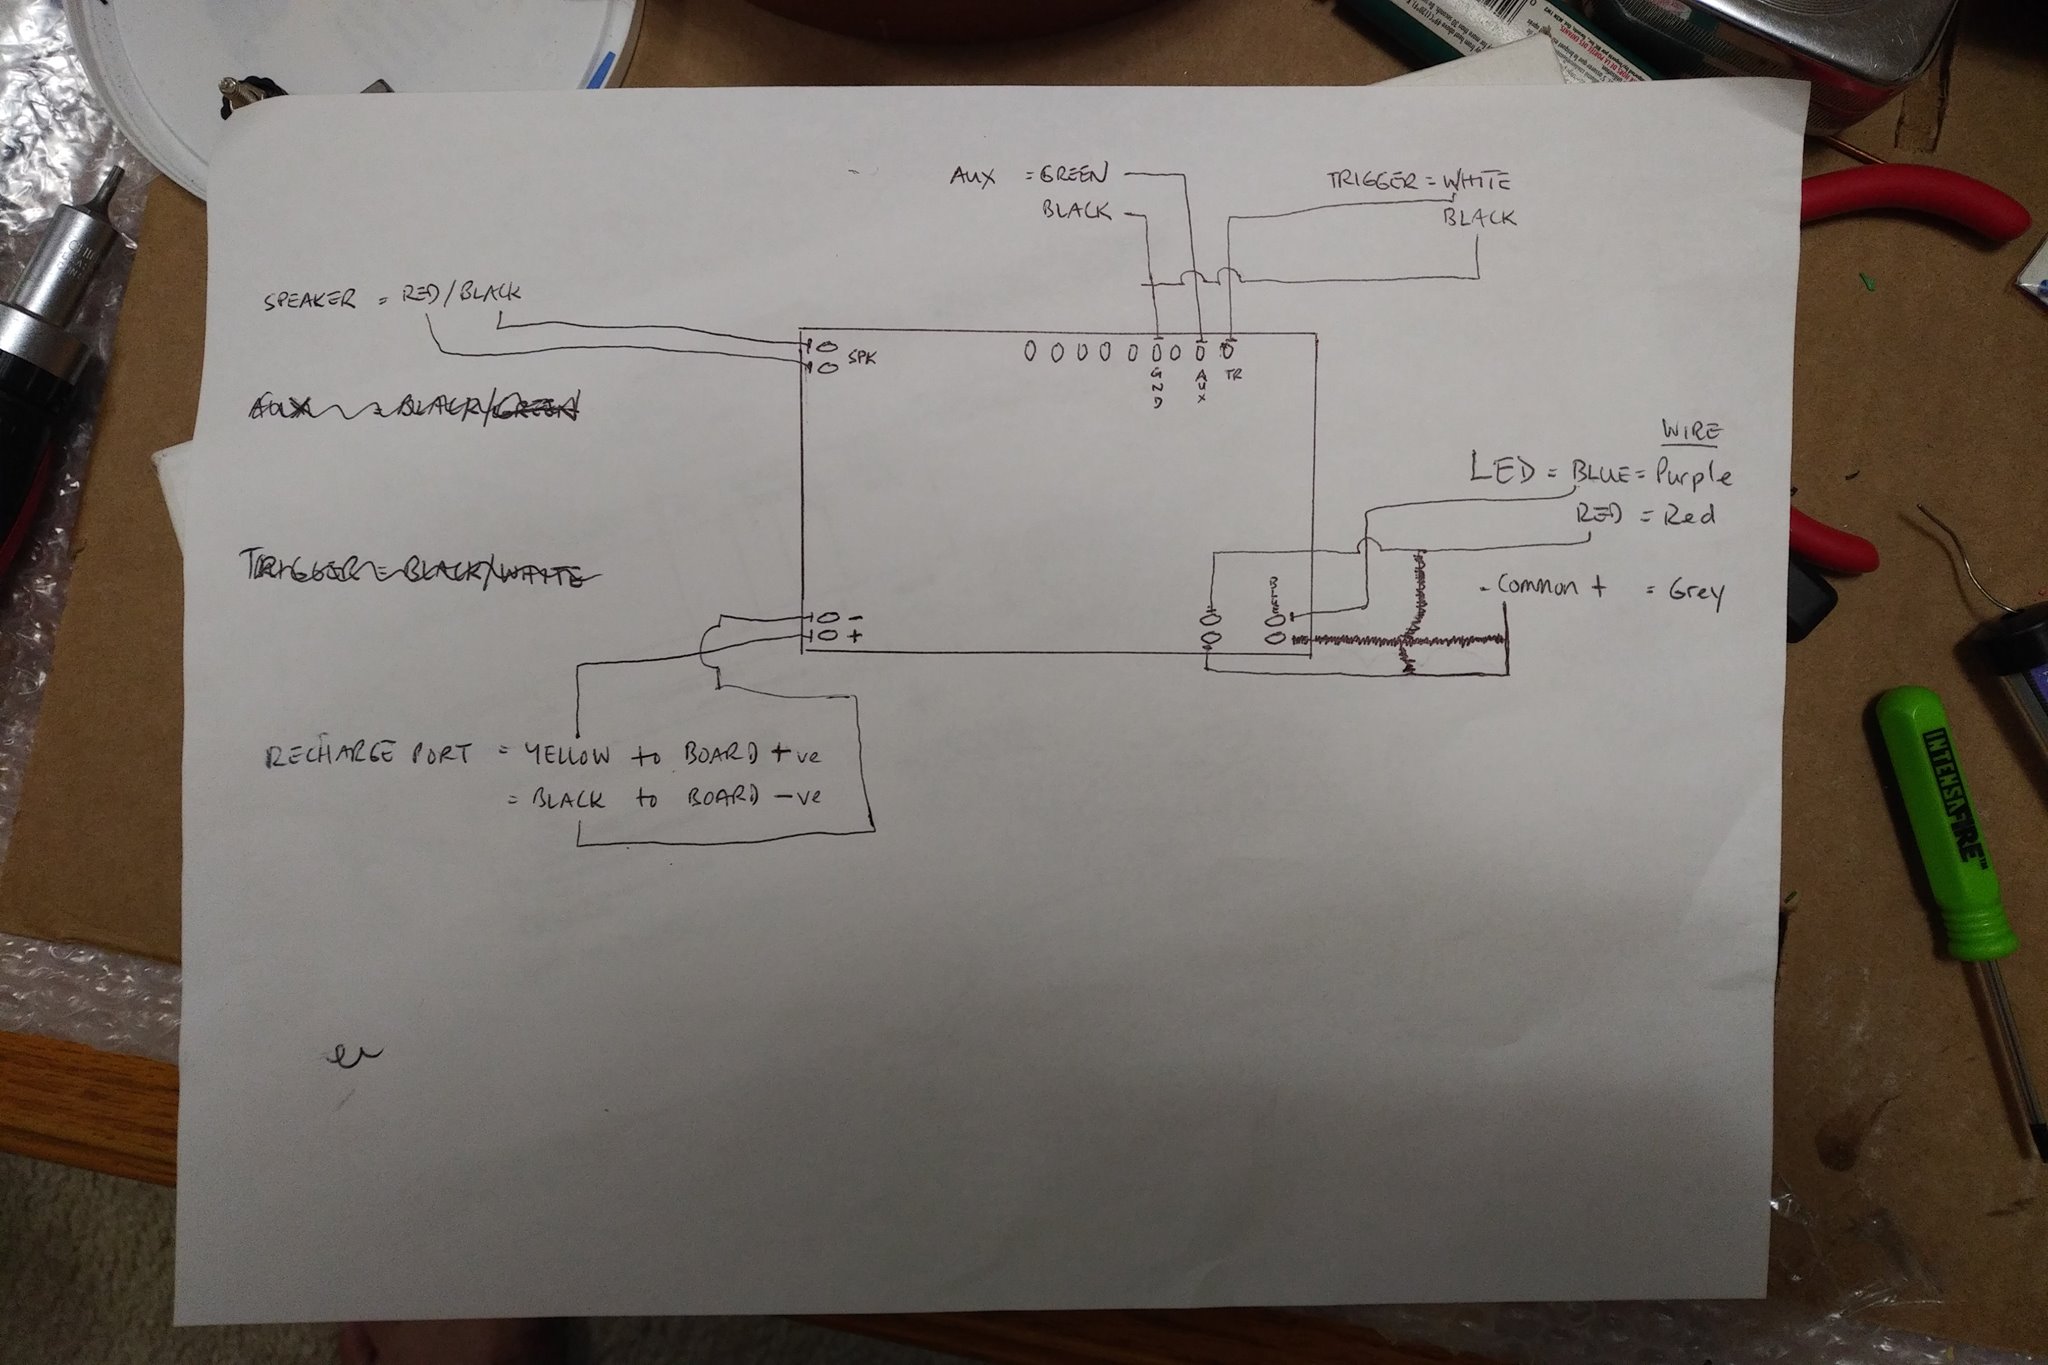 AUX = GREEN
BLACK
TRIGGER = WHITE
BLACK
SPEAKER = RED/BLACK
SPK
GND
AUX
TR
AUX = BLACK/GREEN
WIRE
LED = BLUE = Purple
RED = Red
- Common + = Grey
TRIGGER = BLACK/WHITE
-
+
RECHARGE PORT = YELLOW to BOARD +ve
= BLACK to BOARD -ve
INTENSAFIRE™